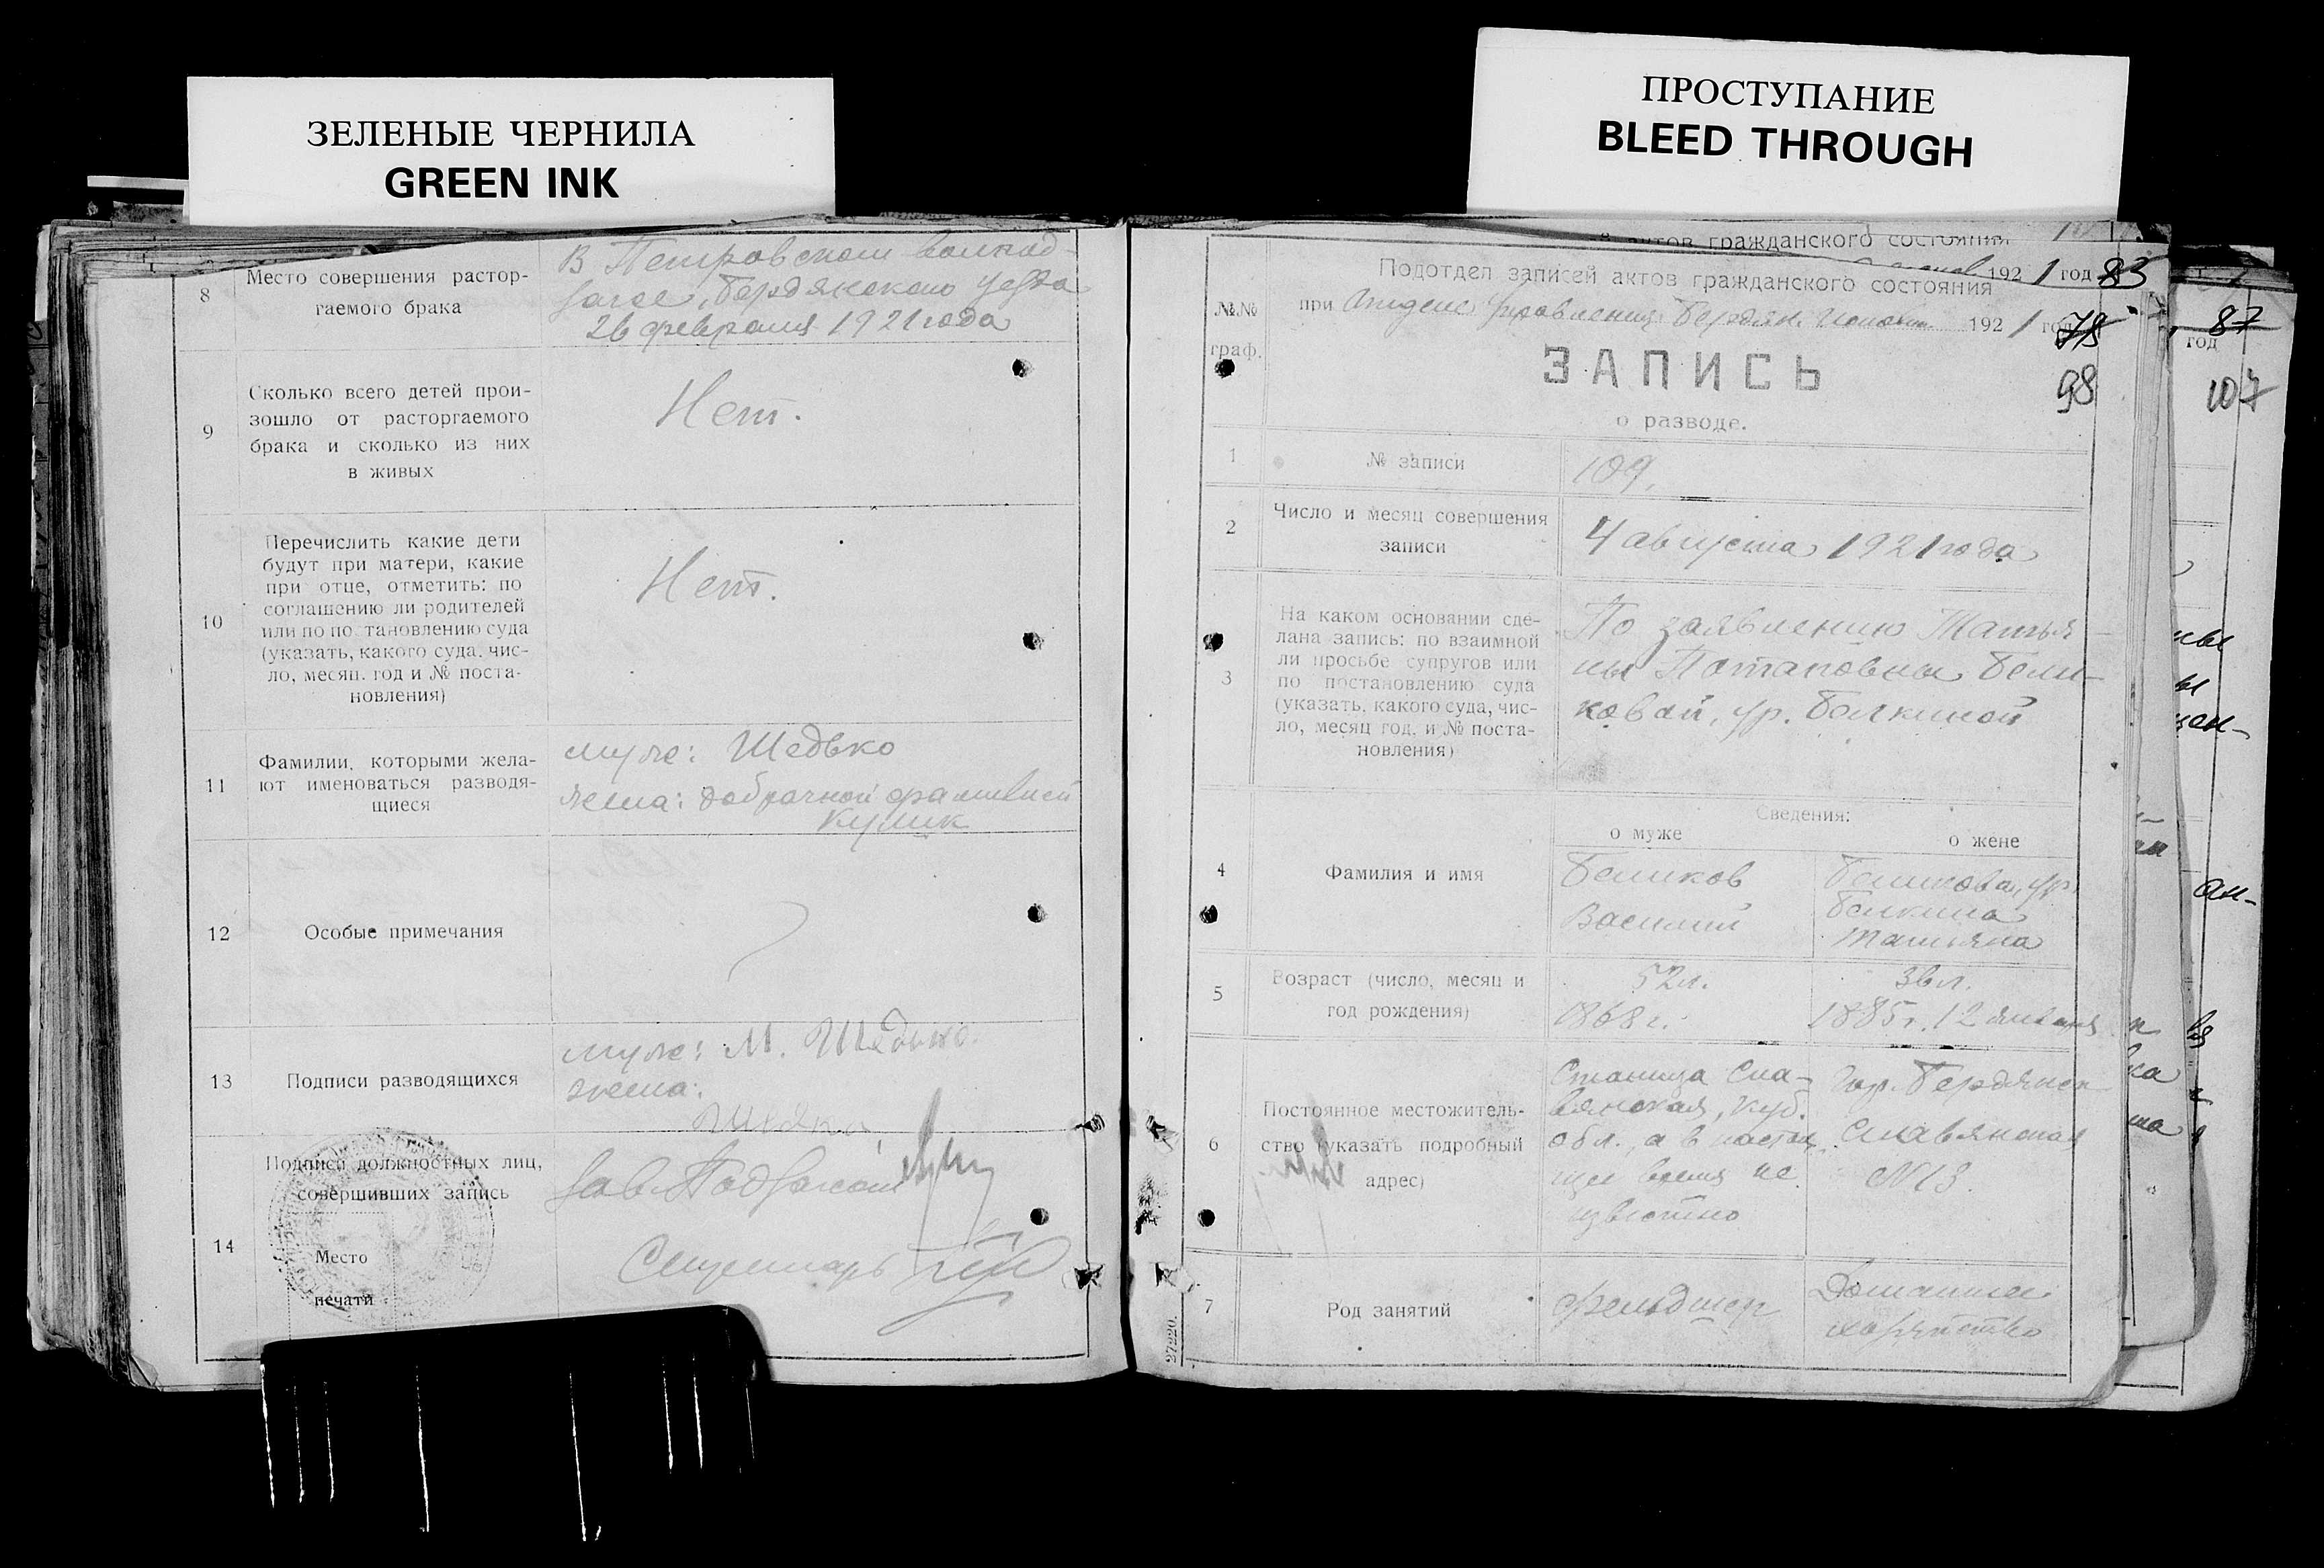 ЗЕЛЕНЫЕ ЧЕРНИЛА
GREEN INK
ПРОСТУПАНИЕ
BLEED THROUGH
8
Место совершения растор-
гаемого брака
В Петровском волпод-
загсе, Бердянского уезда
26 февраля 1921 года
9
Сколько всего детей прои-
зошло от расторгаемого
брака и сколько из них
в живых
Нет.
10
Перечислить какие дети
будут при матери, какие
при отце, отметить: по
соглашению ли родителей
или по по тановлению суда
(указать, какого суда, чис-
ло, месяц, год и № поста-
новления)
Нет.
11
Фамилии, которыми жела-
ют именоваться разводя-
щиеся
муж: Шедько
жена: добрачной фамилией
Кулик
12
Особые примечания
13
Подписи разводящихся
муж: М. Шедько.
жена:
14
Подписи должностных лиц,
совершивших запись
Место
печати
Зав. Подзагсом
Секретарь
актов гражданского состояния
192 1 год 83
Подотдел записей актов гражданского состояния
при Отделе Управления Бердян. 192 1 год
78
98
№№
граф.
ЗАПИСЬ
о разводе.
1
№ записи
109.
2
Число и месяц совершения
записи
4 августа 1921 года
3
На каком основании сде-
лана запись: по взаимной
ли просьбе супругов или
по постановлению суда
(указать, какого суда, чис-
ло, месяц год, и № поста-
новления)
По заявлению Татья-
ны Потаповны Бели-
ковой, ур. Белкиной
Сведения:
о муже
о жене
4
Фамилия и имя
Беликов
Василий
Беликова, ур.
Белкина
Татьяна
5
Возраст (число, месяц и
год рождения)
52 л.
1868 г.
36 л.
1885 г. 12 января
6
Постоянное местожитель-
ство (указать подробный
адрес)
Станица Сла-
вянская, Куб.
обл., а в настоя-
щее время не
известно
Гор. Бердянск
Славянская
№13.
7
Род занятий
фельдшер
Домашнее
хозяйство
27220.
87
год
107